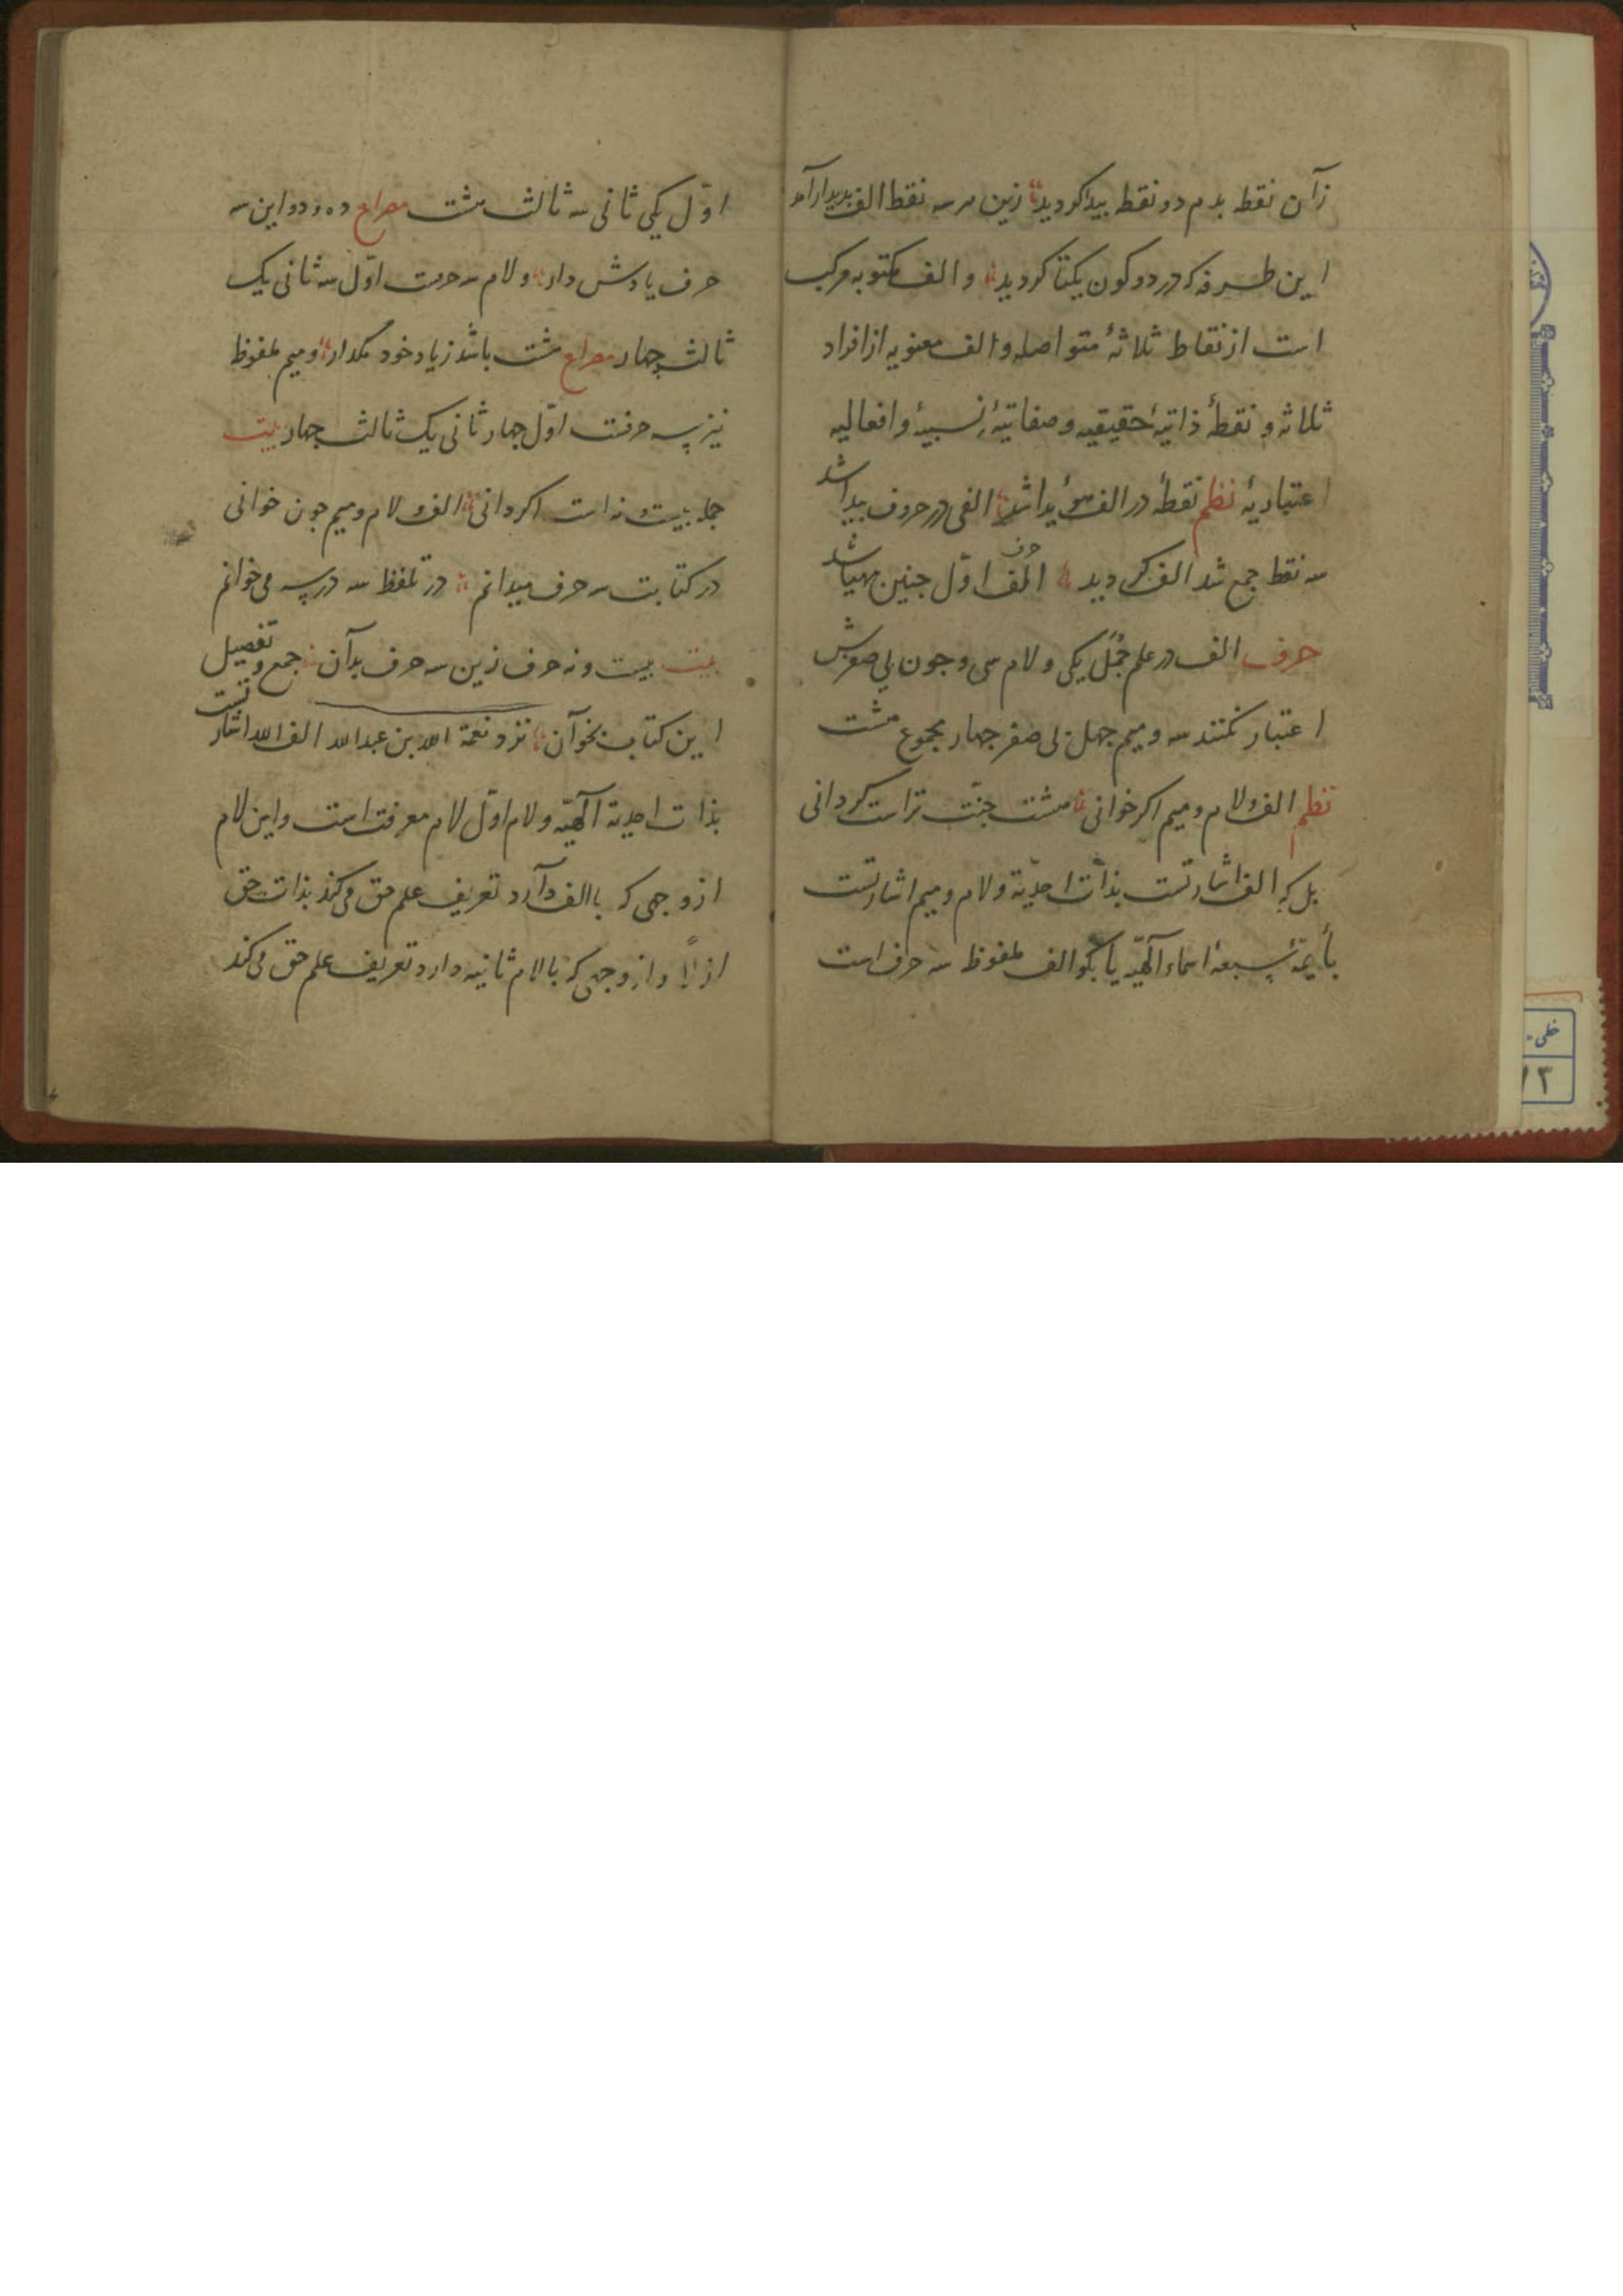 زآن نقطه بدم دو نقطه پیدا کردید زین هر سه نقط الف پدیدار آمد
این طرفه که در دو کون یکتا کردید و الف مکتوبه مرکب
است از نقاط ثلاثهٔ متواصله و الف معنویه از افراد
ثلاثه و نقطهٔ ذاتیهٔ حقیقیه و صفاتیهٔ نسبیهٔ و افعالیه
اعتباریهٔ نظم نقطهٔ در الف هویدا شد الفی در حروف پیدا شد
سه نقط جمع شد الف کردید الف حرف اوّل جنین مهیا شد
حرف الف در علم جُمَل یکی و لام سی و جون بی صفرش
اعتبار کنند سه و میم جهل بی صفر جهار مجموع هشت
نظم الف و لام و میم اکر خوانی هشت جنّت تراست کردانی
بل که الف اشارتست بذات احدیّة و لام و میم اشارتست
بأیمّهٔ سبعهٔ اسماء آلهیّه یا بکو الف ملفوظ سه حرف است
اوّل یکی ثانی سه ثالث هشت مصراع ده و دو این سه
حرف یادش دار و لام سه حرفت اوّل سه ثانی یک
ثالث جهار مصراع هشت باشد زیاد خود مکذار و میم ملفوظ
نیز سه حرفت اوّل جهار ثانی یک ثالث جهار بیت
جمله بیست و نه است اکر دانی الف و لام و میم جون خوانی
در کتابت سه حرف میدانم در تلفظ سه در سه می خوانم
بیت بیست و نه حرف زین سه حرف بدآن جمع و تفصیل
این کتاب بخوآن نزد نعمة الله بن عبدالله الف الله اشارتست
بذات احدیة آلهیّه و لام اوّل لام معرفت است و این لام
از وجهی که با الف دآرد تعریف علم حق می کند بذات حق
ازلاً و از وجهی که با لام ثانیه دارد تعریف علم حق می کند
خطی